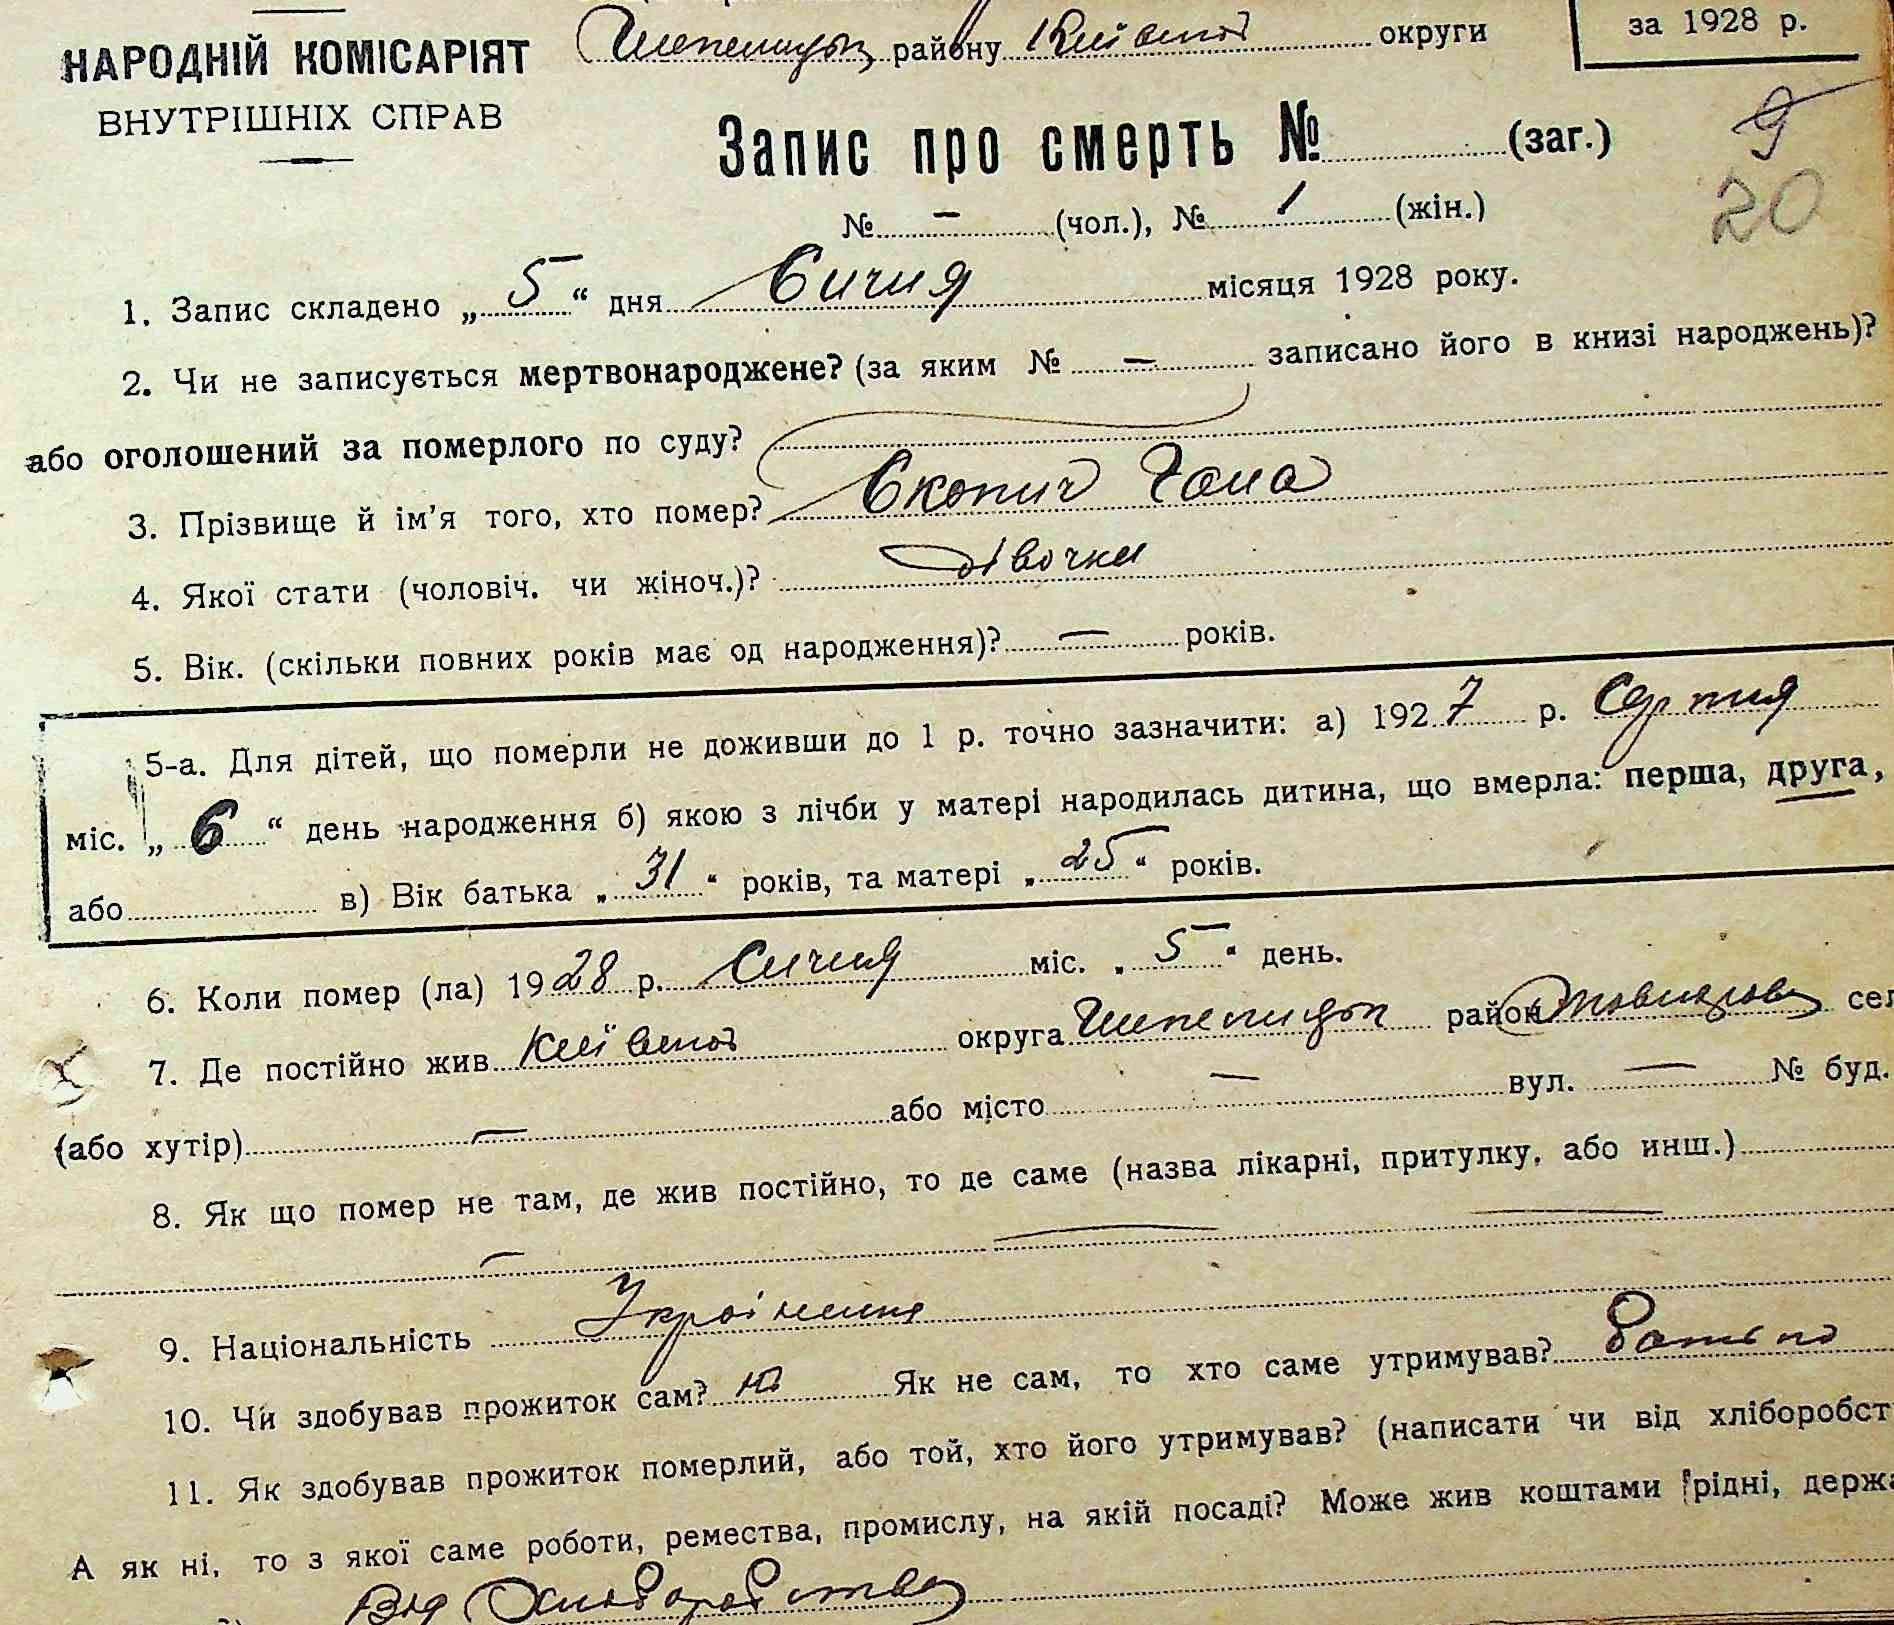 НАРОДНІЙ КОМІСАРІЯТ
ВНУТРІШНІХ СПРАВ
Шепелицьк. району Київськ округи
за 1928 р.
Запис про смерть № (заг.)
9
20
№ — (чол.), № 1 (жін.)
1. Запис складено „ 5 “ дня Січня місяця 1928 року.
2. Чи не записується мертвонароджене? (за яким № — записано його в книзі народжень)?
або оголошений за померлого по суду?
3. Прізвище й ім’я того, хто помер? Скопич Гана
4. Якої стати (чоловіч. чи жіноч.)? дівочки
5. Вік. (скільки повних років має од народження)? — років.
5-а. Для дітей, що померли не доживши до 1 р. точно зазначити: а) 1927 р. Серпня
міс. „ 6 “ день народження б) якою з лічби у матері народилась дитина, що вмерла: перша, друга,
або в) Вік батька „ 31 “ років, та матері „ 25 “ років.
6. Коли помер (ла) 1928 р. Січня міс. „ 5 “ день.
7. Де постійно жив Київськ округа Шепелицьк район сел
(або хутір) — або місто — вул. — № буд.
8. Як що помер не там, де жив постійно, то де саме (назва лікарні, притулку, або инш.)
— — —
9. Національність Українка
10. Чи здобував прожиток сам? ні Як не сам, то хто саме утримував? Батько
11. Як здобував прожиток померлий, або той, хто його утримував? (написати чи від хліборобст
А як ні, то з якої саме роботи, ремества, промислу, на якій посаді? Може жив коштами рідні, держа
Від Хліборобства